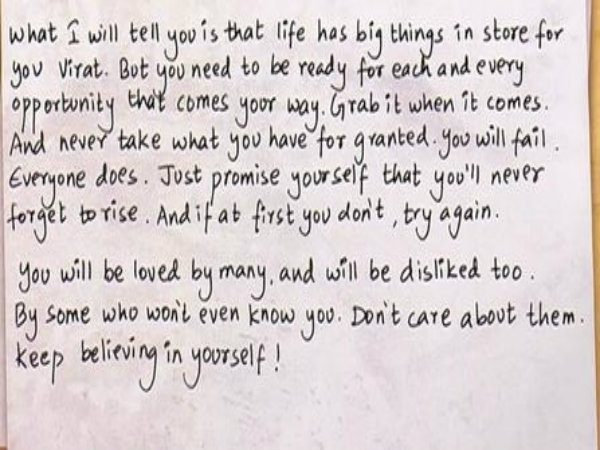 What I will tell you is that life has big things in store for
you Virat. But you need to be ready for each and every
opportunity that comes your way. Grab it when it comes.
And never take what you have for granted. You will fail.
Everyone does. Just promise yourself that you'll never
forget to rise. And if at first you don't, try again.
You will be loved by many, and will be disliked too.
By some who won't even know you. Don't care about them.
Keep believing in yourself!